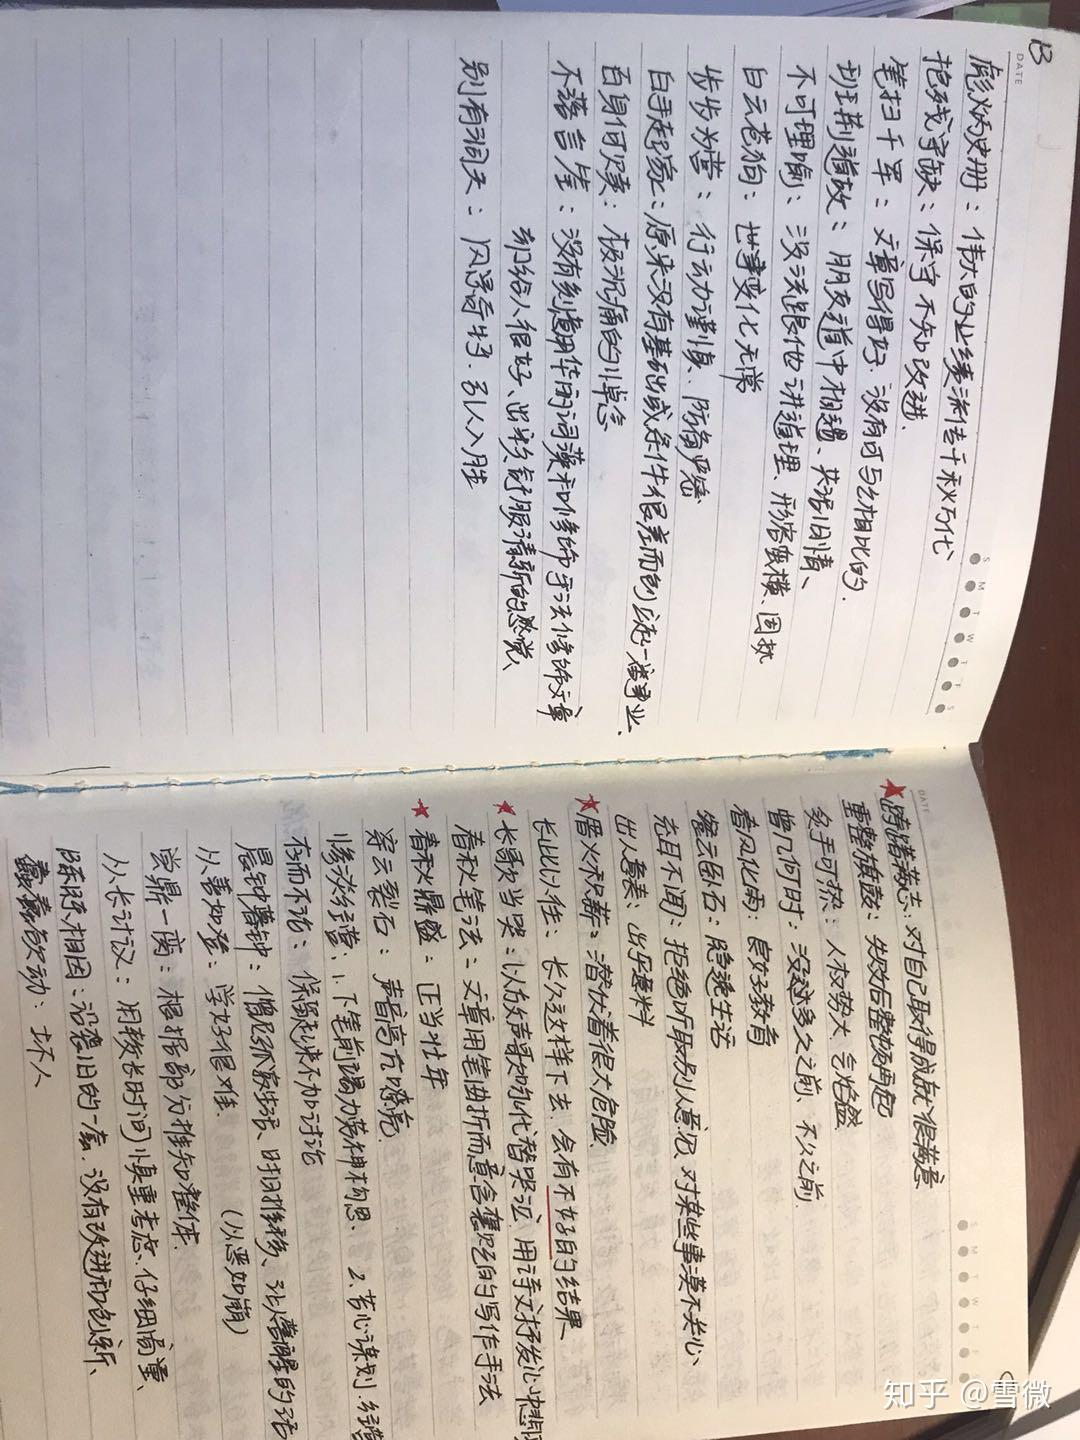 B
DATE
S M T W T F S
彪炳史册：伟大的业绩流传千秋万代
抱残守缺：保守不知改进.
笔扫千军：文章写得好,没有可与之相比的.
班荆道故：朋友道中相遇、共话旧情、
不可理喻：没法跟他讲道理、形容蛮横、固执
白云苍狗：世事变化无常
步步为营：行动谨慎、防备严密
白手起家：原来没有基础或条件很差而创立起一番事业、
百身何赎：极沉痛的悼念
不落言筌：没有刻意用华丽词藻和修饰手法修饰文章
却给人很好、出尘舒服清新的感觉、
别有洞天：风景奇特.引人入胜
DATE
S M T W T F S
★踌躇满志：对自己取得成就很满意
重整旗鼓：失败后整顿再起
炙手可热：人权势大,气焰盛
曾几何时：没过多久之前、不久之前
春风化雨：良好教育
眠云卧石：隐逸生活
充耳不闻：拒绝听取别人意见,对某些事漠不关心、
出人意表：出乎意料
★厝火积薪：潜伏着很大危险
长此以往：长久这样下去,会有不好的结果
★长歌当哭：以放声歌咏代替哭泣,用诗文抒发心中悲愤
春秋笔法：文章用笔曲折而意含褒贬的写作手法
★春秋鼎盛：正当壮年
穿云裂石：声音高亢嘹亮
惨淡经营：1.下笔前竭力苦神构思、2.苦心谋划.经营
存而不论：保留起来不加讨论
晨钟暮钟：僧尼孤寂生活、时日推移、让人警醒的话
从善如登：学好很难. (从恶如崩)
尝鼎一脔：根据部分推知整体.
从长计议：用较长时间慎重考虑.仔细商量、
陈陈相因：沿袭旧的一套.没有改进和创新、
蠢蠢欲动：坏人
知乎 @雪微